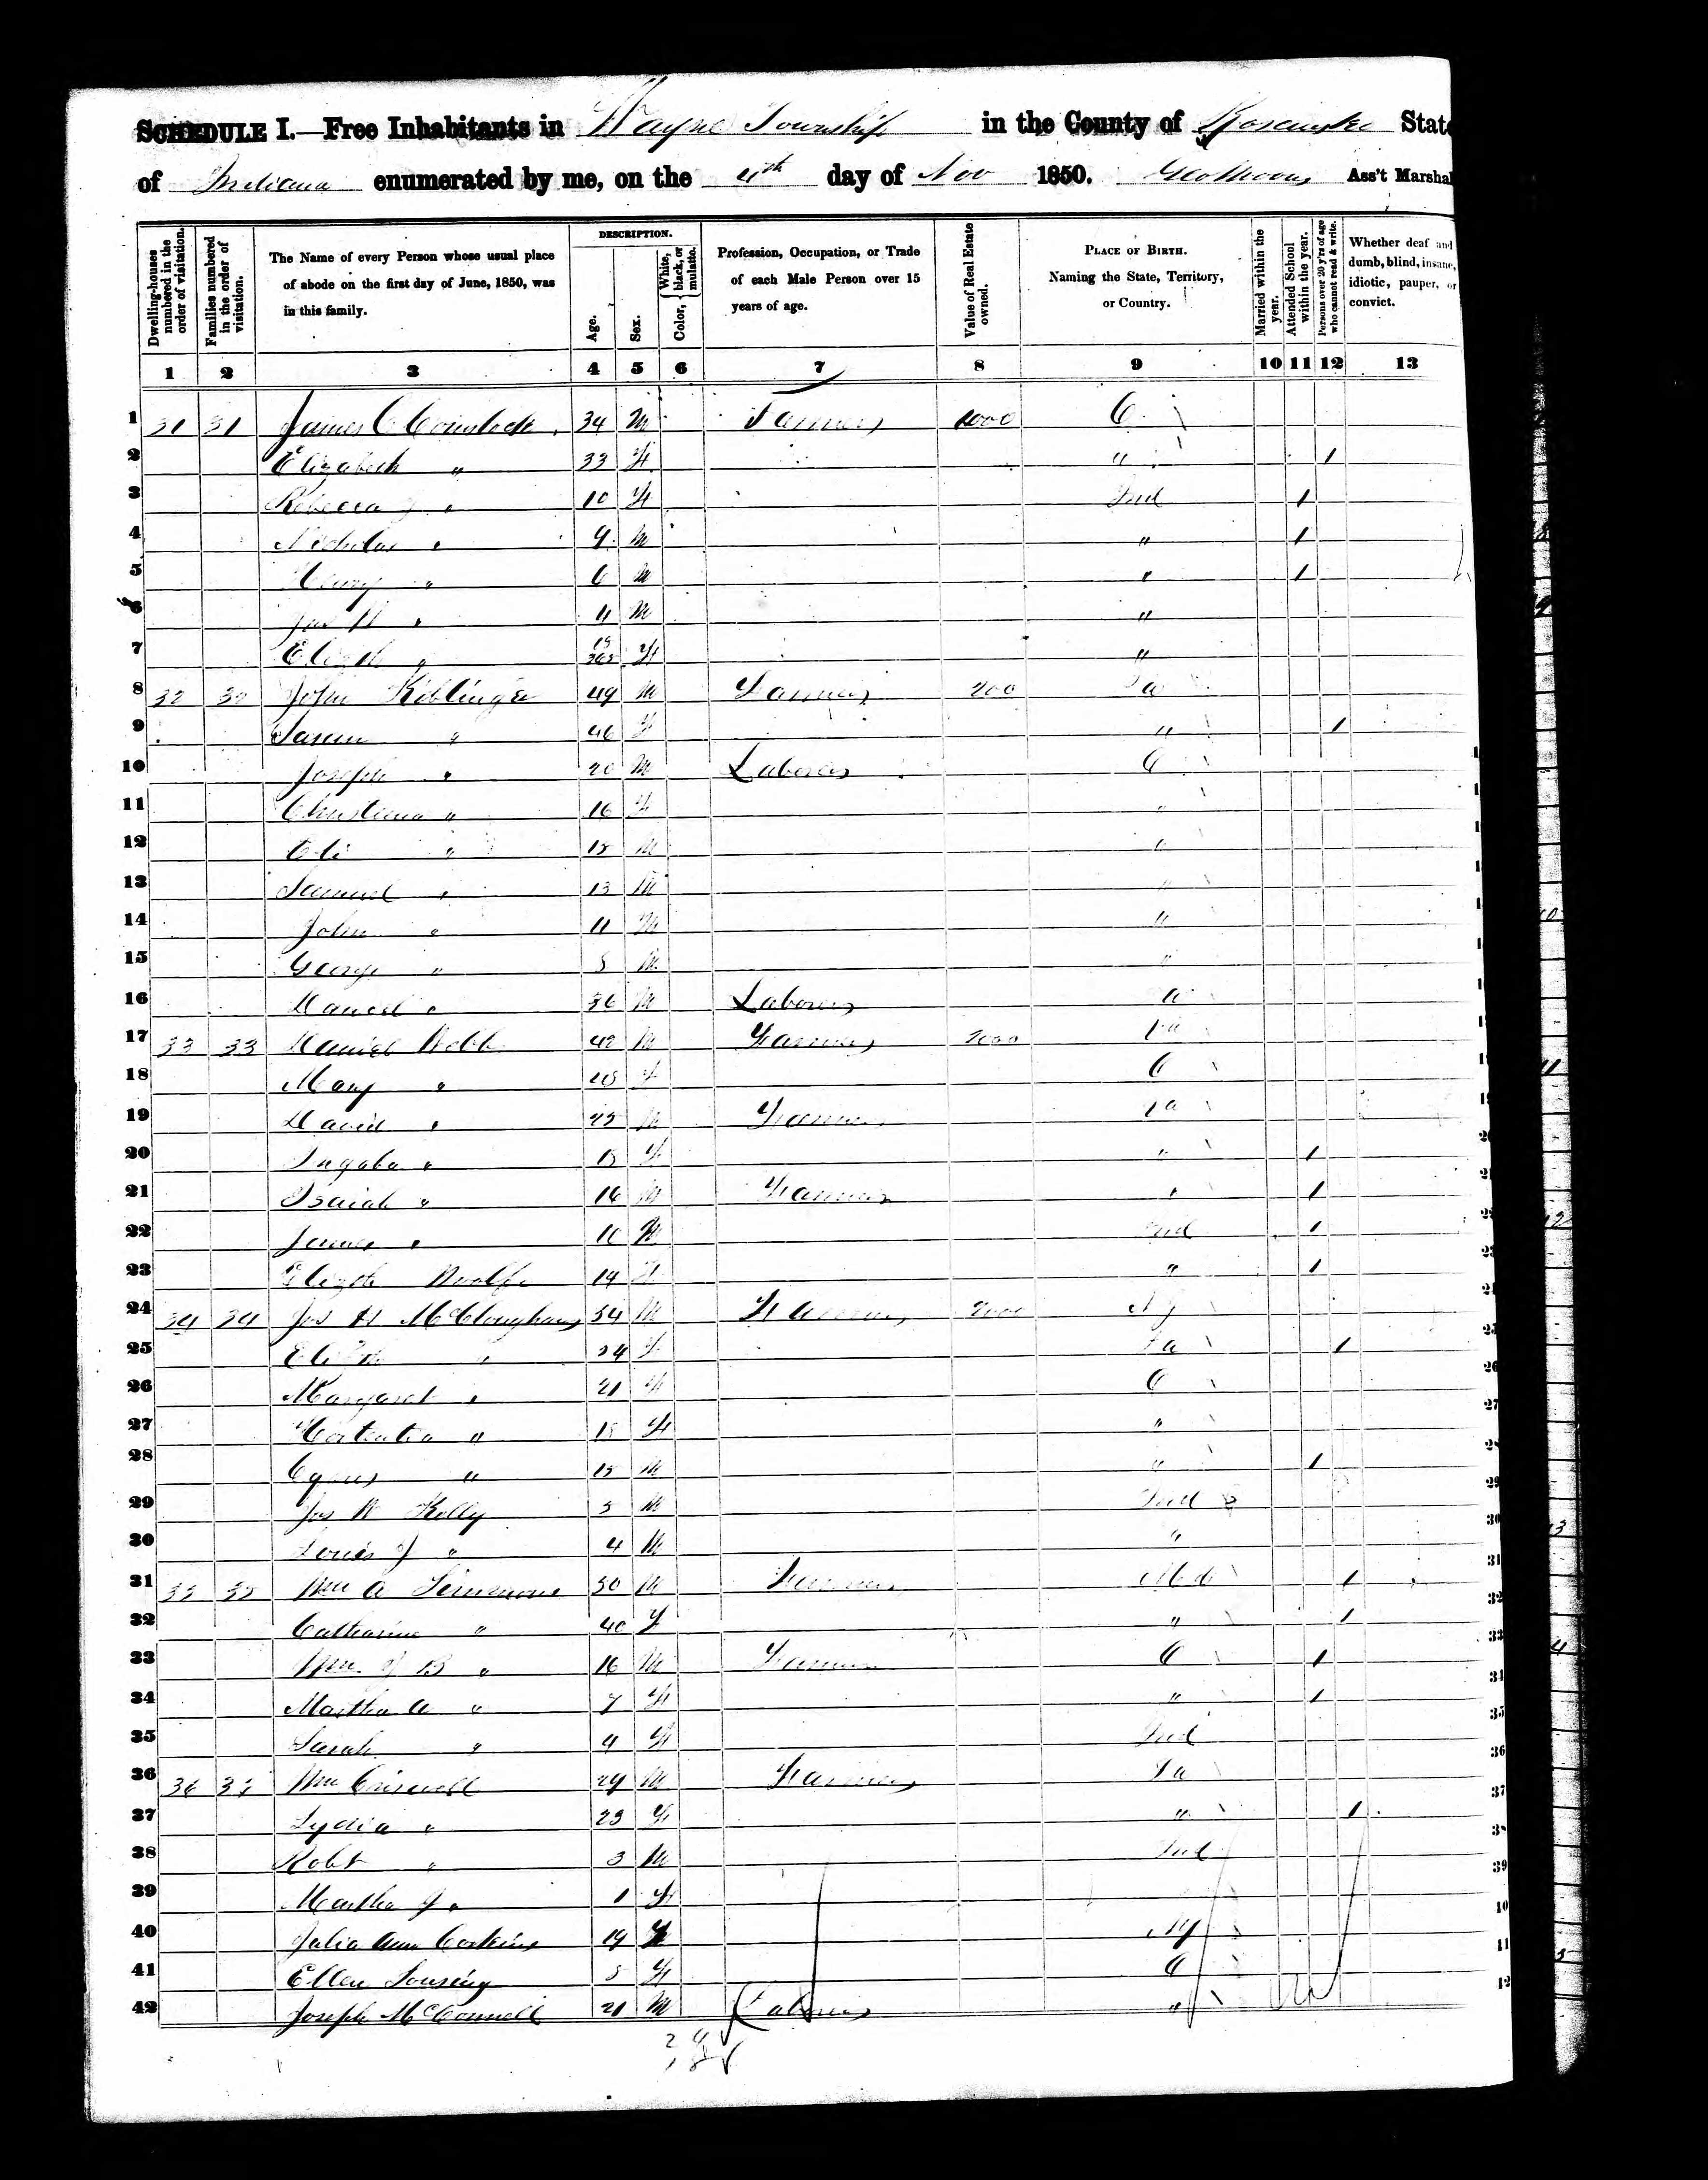 SCHEDULE I.—Free Inhabitants in Wayne Township in the County of Kosciusko State
of Indiana enumerated by me, on the 4th day of Nov 1850. Geo Moon, Ass't Marshal
Dwelling-houses numbered in the order of visitation.
Families numbered in the order of visitation.
The Name of every Person whose usual place of abode on the first day of June, 1850, was in this family.
DESCRIPTION.
Age.
Sex.
Color, { White, black, or mulatto.
Profession, Occupation, or Trade of each Male Person over 15 years of age.
Value of Real Estate owned.
PLACE OF BIRTH. Naming the State, Territory, or Country.
Married within the year.
Attended School within the year.
Persons over 20 y'rs of age who cannot read & write.
Whether deaf and dumb, blind, insane, idiotic, pauper, or convict.
1 2 3 4 5 6 7 8 9 10 11 12 13
1 31 31 James C Comstock 34 M Farmer 1000 O
2 Elizabeth " 33 F " 1
3 Rebecca J " 10 F Ind 1
4 Nicholas " 9 M " 1
5 Henry " 6 M " 1
6 Jas H " 4 M "
7 Elizth " 19/365 F "
8 32 32 John Kiblinger 49 M Farmer 200 Pa
9 " 46 F " 1
10 Joseph " 20 M Laborer O
11 Christiana " 16 F "
12 Eli " 15 M "
13 Samuel " 13 M "
14 John " 11 M "
15 George " 8 M "
16 " 36 M Laborer
17 33 33 Daniel Webb 42 M Farmer 2000 Pa
18 Mary " F O
19 David " 23 M Farmer Pa
20 " F " 1
21 Isaiah " 16 M Farmer " 1
22 James " 10 M Ind 1
23 Elizth Woolfe 14 F " 1
24 34 34 Jas H 54 M Farmer 2000 NJ
25 Elizth " F Pa 1
26 Margaret " 21 F O
27 " 18 F "
28 Cyrus " 15 M " 1
29 Jas W Kelly 5 M Ind
30 Louis J " 4 M "
31 35 35 Wm A Simmons 50 M Farmer Md 1
32 Catharine " 40 F " 1
33 Wm J B " 16 M Farmer O 1
34 Martha A " 7 F " 1
35 Sarah " 4 F Ind
36 36 36 Wm Criswell 29 M Farmer Pa
37 Lydia " 23 F " 1
38 Robt " 3 M Ind
39 Martha J " 1 F
40 Julia Ann 19 F NY
41 Ellen 8 F O
42 Joseph McConnell 21 M Laborer "